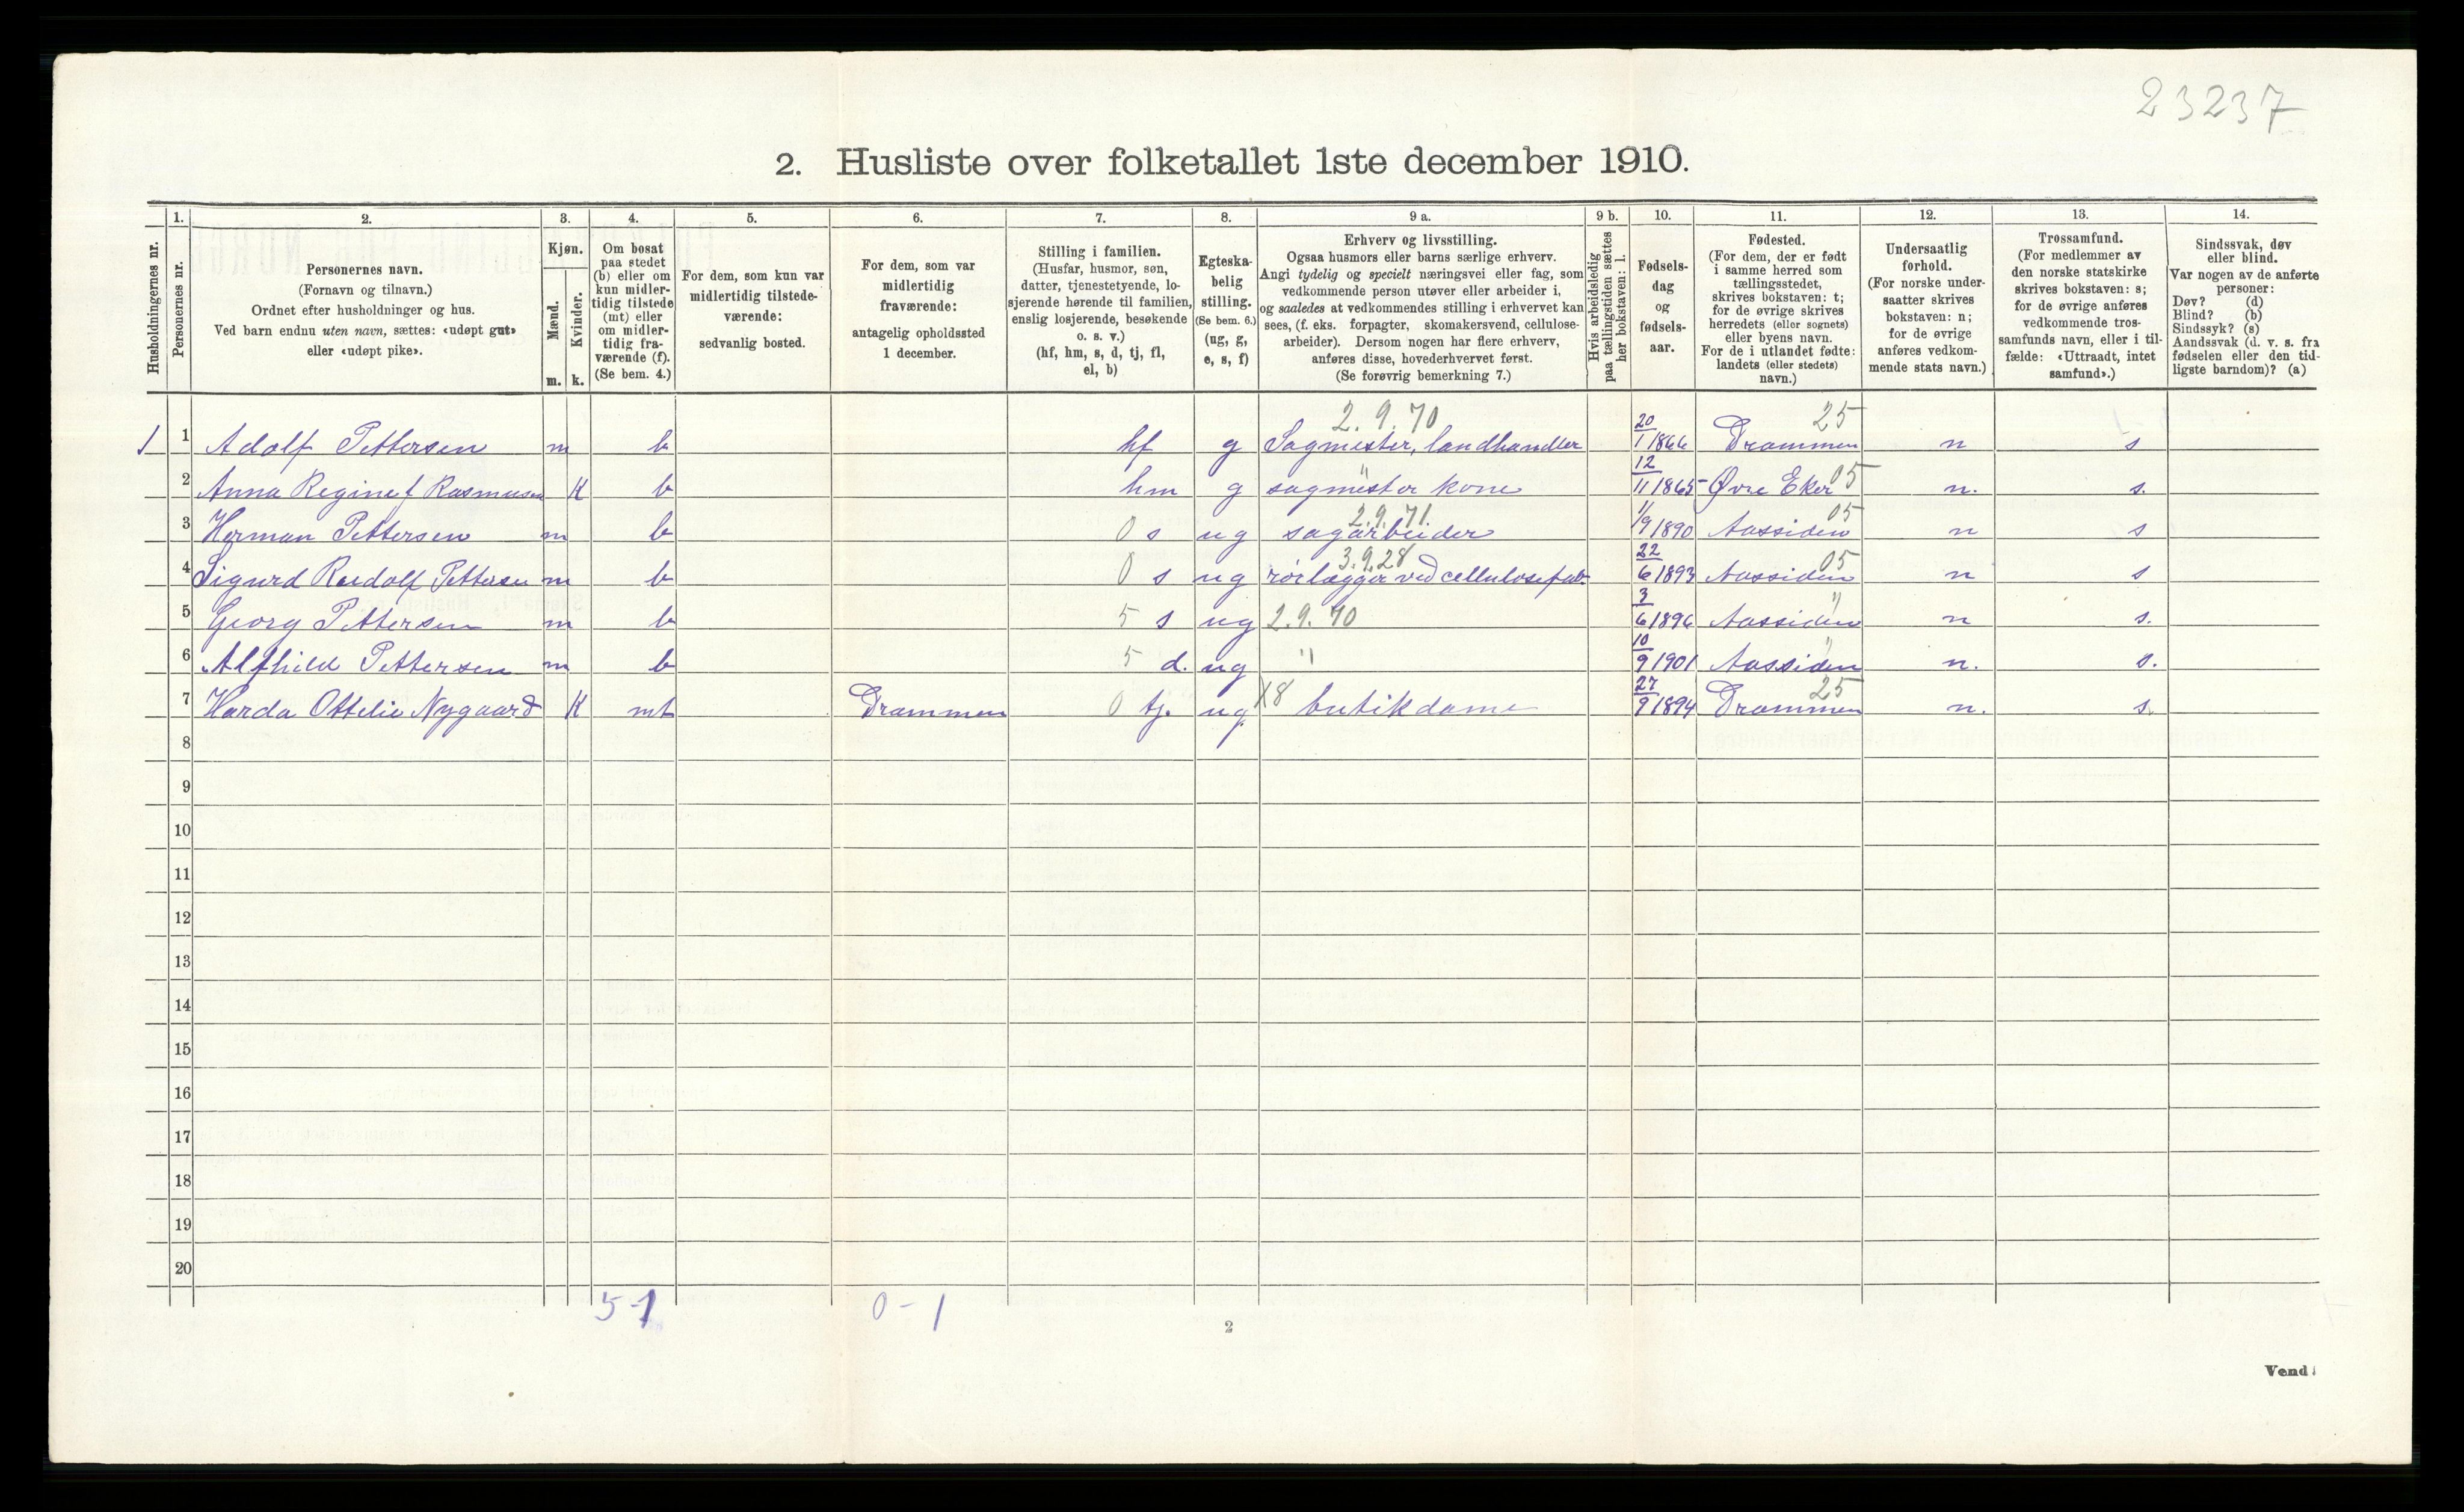 23237
2. Husliste over folketallet 1ste december 1910.
Husholdningernes nr.
1.
Personernes nr.
2.
Personernes navn.
(Fornavn og tilnavn.)
Ordnet efter husholdninger og hus.
Ved barn endnu uten navn, sættes: «udøpt gut»
eller «udøpt pike».
3.
Kjøn.
Mænd.
Kvinder.
m. k.
4.
Om bosat
paa stedet
(b) eller om
kun midler-
tidig tilstede
(mt) eller
om midler-
tidig fra-
værende (f).
(Se bem. 4.)
5.
For dem, som kun var
midlertidig tilstede-
værende:
sedvanlig bosted.
6.
For dem, som var
midlertidig
fraværende:
antagelig opholdssted
1 december.
7.
Stilling i familien.
(Husfar, husmor, søn,
datter, tjenestetyende, lo-
sjerende hørende til familien,
enslig losjerende, besøkende
o. s. v.)
(hf, hm, s, d, tj, fl,
el, b)
8.
Egteska-
belig
stilling.
(Se bem. 6.)
(ug, g,
e, s, f)
9 a.
Erhverv og livsstilling.
Ogsaa husmors eller barns særlige erhverv.
Angi tydelig og specielt næringsvei eller fag, som
vedkommende person utøver eller arbeider i,
og saaledes at vedkommendes stilling i erhvervet kan
sees, (f. eks. forpagter, skomakersvend, cellulose-
arbeider). Dersom nogen har flere erhverv,
anføres disse, hovederhvervet først.
(Se forøvrig bemerkning 7.)
9 b.
Hvis arbeidsledig
paa tællingstiden sættes
her bokstaven: l.
10.
Fødsels-
dag
og
fødsels-
aar.
11.
Fødested.
(For dem, der er født
i samme herred som
tællingsstedet,
skrives bokstaven: t;
for de øvrige skrives
herredets (eller sognets)
eller byens navn.
For de i utlandet fødte:
landets (eller stedets)
navn.)
12.
Undersaatlig
forhold.
(For norske under-
saatter skrives
bokstaven: n;
for de øvrige
anføres vedkom-
mende stats navn.)
13.
Trossamfund.
(For medlemmer av
den norske statskirke
skrives bokstaven: s;
for de øvrige anføres
vedkommende tros-
samfunds navn, eller i til-
fælde: «Uttraadt, intet
samfund».)
14.
Sindssvak, døv
eller blind.
Var nogen av de anførte
personer:
Døv? (d)
Blind? (b)
Sindssyk? (s)
Aandssvak (d. v. s. fra
fødselen eller den tid-
ligste barndom)? (a)
2.9.70 25
1 1 Adolf Pettersen m b hf g Sagmester, landhandler 20/1 1866 Drammen n s
" 05
2 Anna Regine f Rasmusen K b hm g sagmester kone 12/11 1865 Øvre Eker n. s.
2.9.71. 05
3 Herman Pettersen m b 0 s ug sagarbeider 1/9 1890 Aassiden n s
3.9.28 05
4 Sigurd Rudolf Pettersen m b 0 s ug rörlægger ved cellulosefab. 22/6 1893 Aassiden n s
"
5 Georg Pettersen m b 5 s ug 2.9.70 3/6 1896 Aassiden n s.
"
6 Alfhild Pettersen m b 5 d. ug " 10/9 1901 Aassiden n. s.
25
7 Harda Ottelie Nygaard K mt Drammen 0 tj. ug X8 butikdame 27/9 1894 Drammen n. s.
8
9
10
11
12
13
14
15
16
17
18
19
20
5-1 0-1
2
Vend!